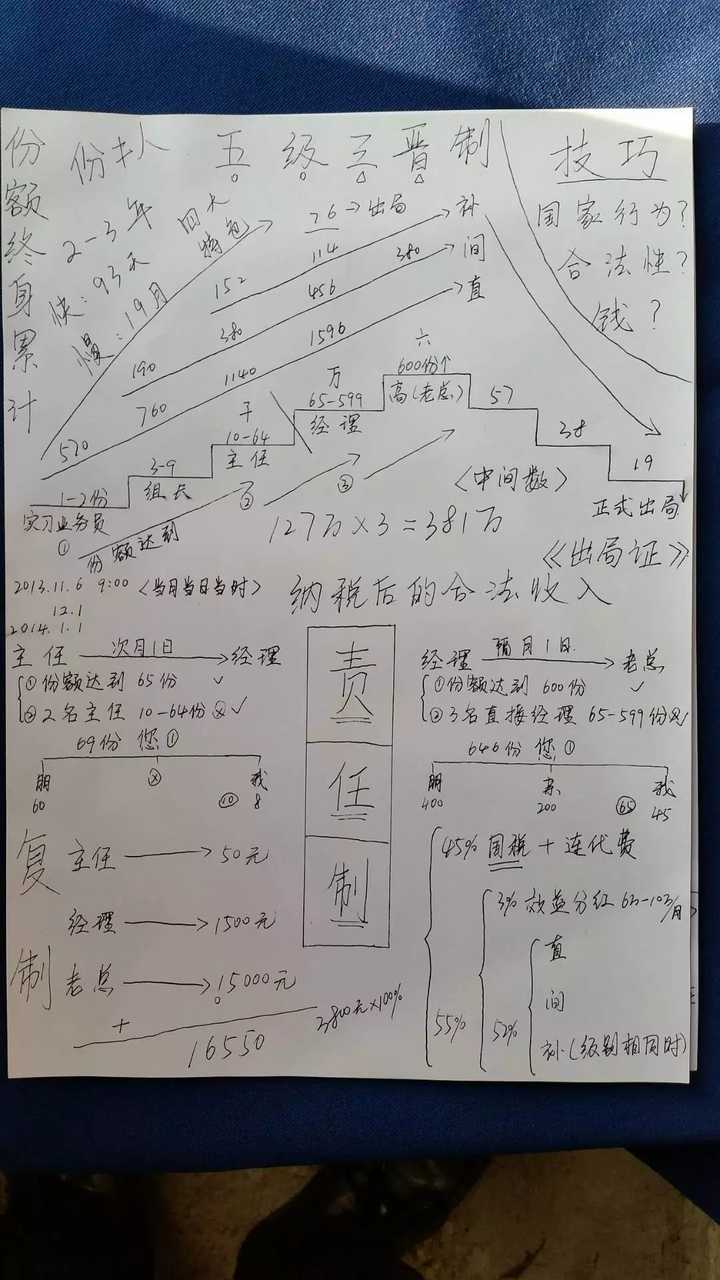 份额终身累计
份 扌人 五级三晋制
技巧
国家行为?
合法性?
钱?
2-3年
快:93天
慢:19月
四大
特色
76→出局
152 114 补
190 380 456 380 间
520 760 1140 1596 直
1-2份
实习业务员
①
3-9
组长
千
10-64
主任
②
万
65-599
经理
③
六
600份↑
高(老总)
57
38
19
正式出局
份额达到
〈中间数〉
127万×3=381万
《出局证》
2013.11.6 9:00〈当月当日当时〉
12.1
2014.1.1
纳税后的合法收入
主任 次月1日 经理
①份额达到65份 ✓
②2名主任 10-64份 ✓
69份 您①
朋 ② 我
60 ⑩ 8
责任制
经理 隔月1日 老总
①份额达到600份 ✓
②3名直接经理 65-599份
646份 您①
朋 亲 我
400 200 65 45
复制
主任→50元
经理→1500元
老总→15000元
+
16550
3800元×100%
45% 国税+连代费
55%
3%效益分红 6万-10万/月
52%
直
间
补(级别相同时)